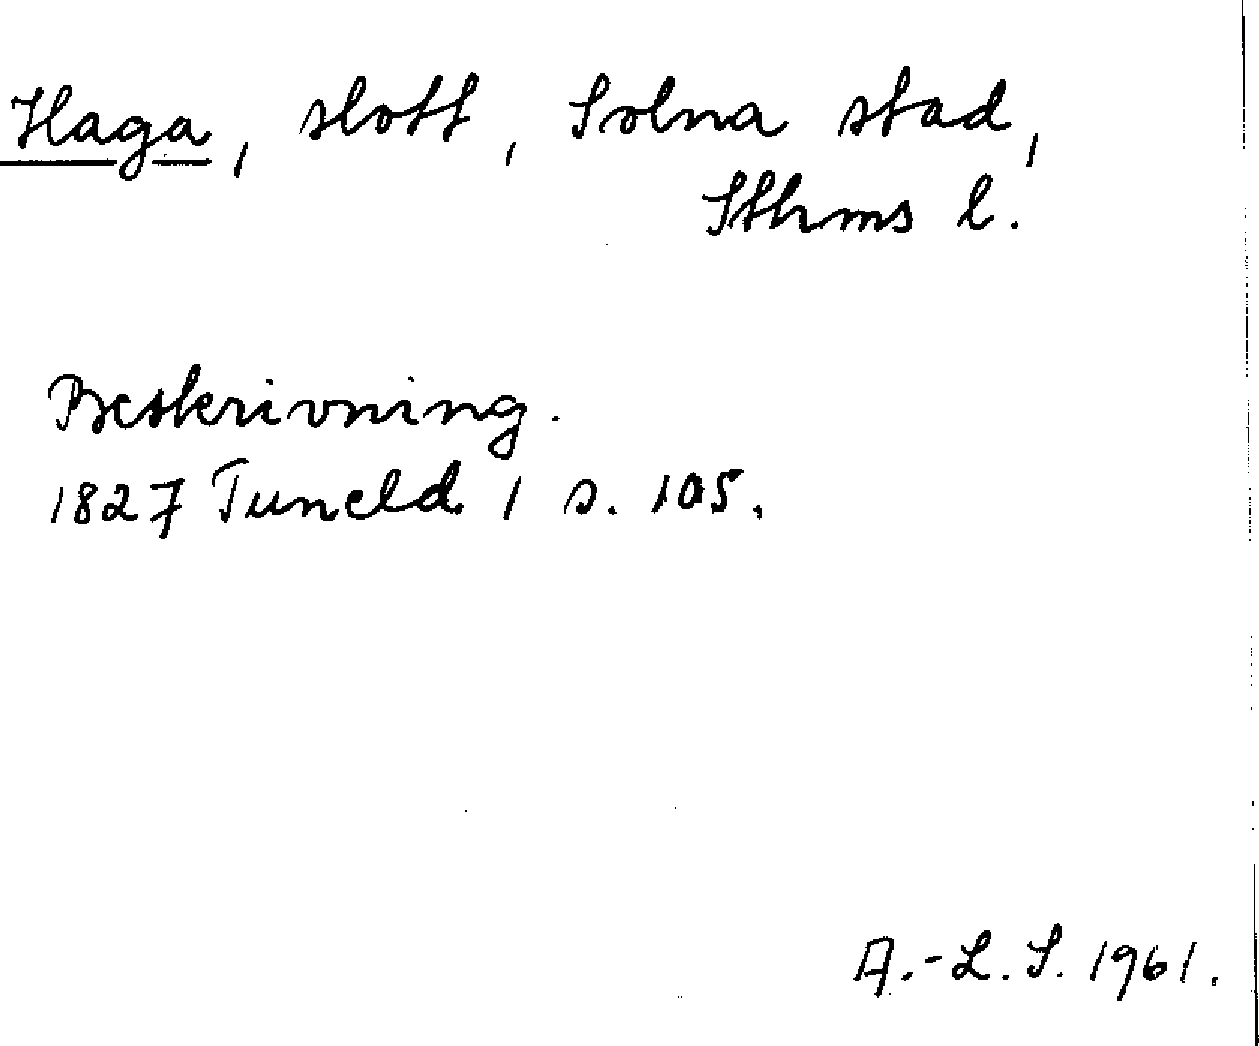 Haga, slott, Solna stad,
Sthms l.
Beskrivning.
1827 Tuneld 1 s. 105.
A.-L. S. 1961.